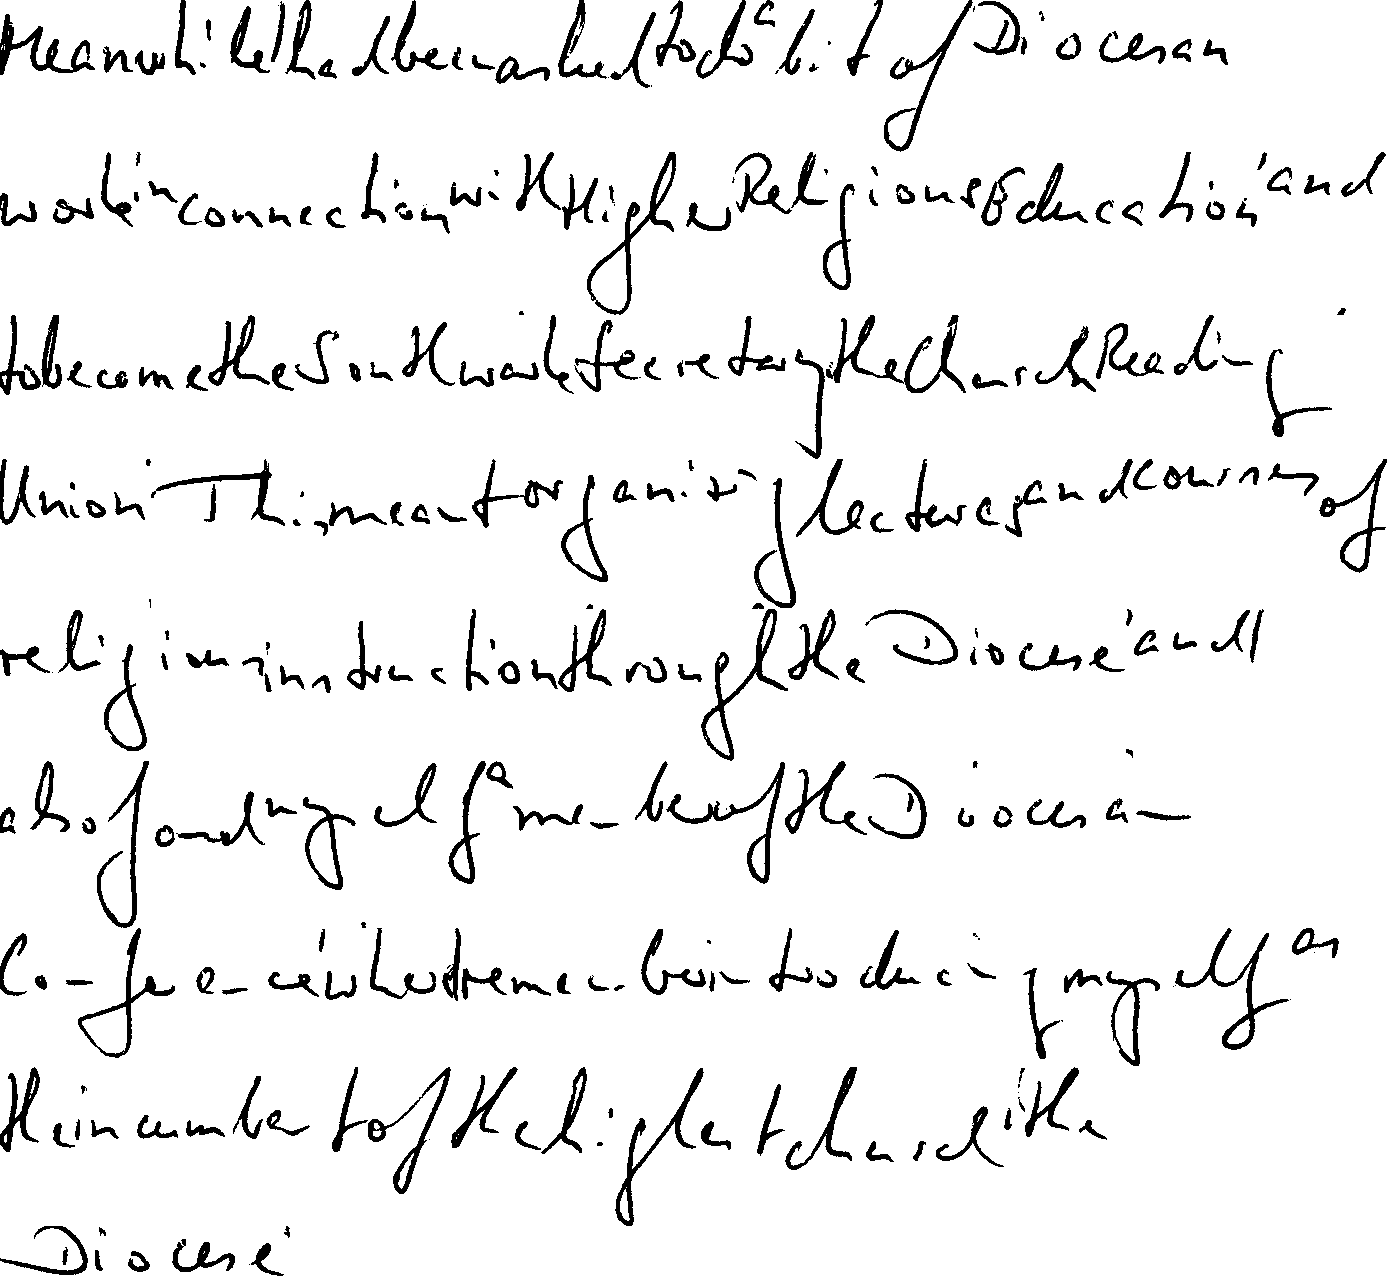 Meanwhile I had been asked to do a bit of Diocesan
work in connection with Higher Religious Education and
to become the Southwark Secretary the Church Reading
Union This meant organising lectures and courses of
religious instruction through the Diocese and I
also found myself a member of the Diocesan
Conference where I remember introducing myself as
the incumbent of the highest church in the
Diocese